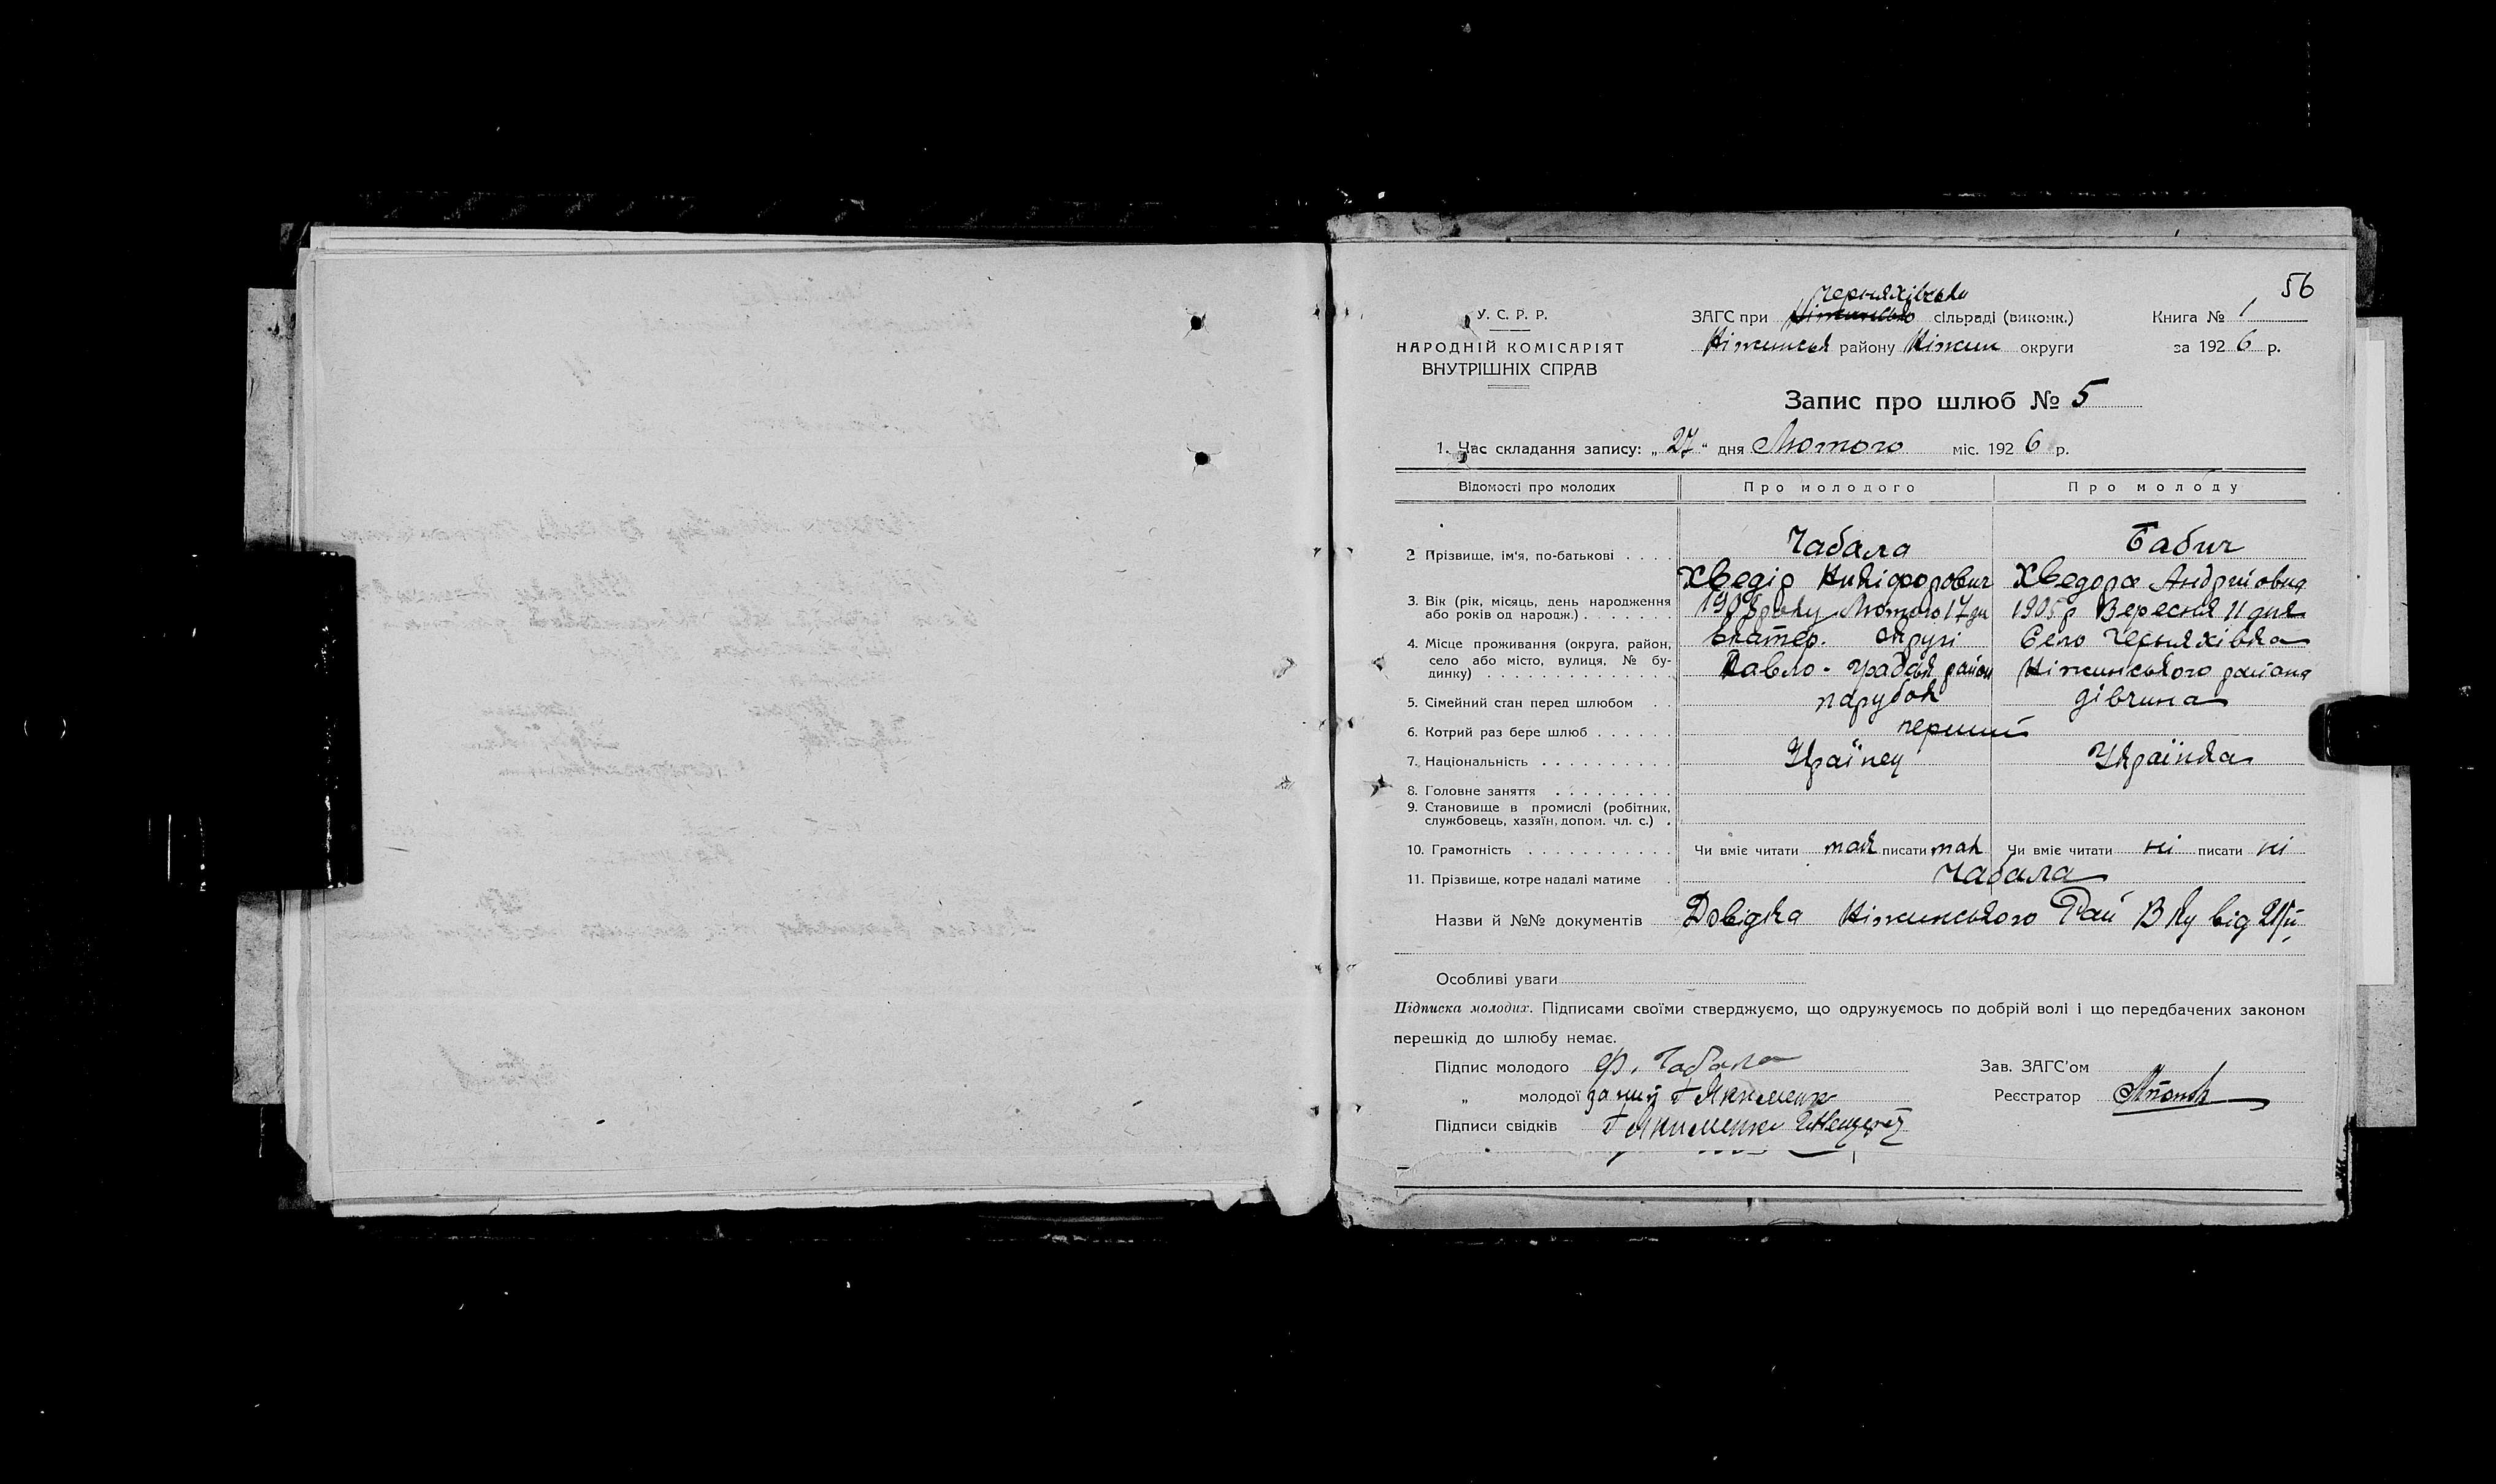 56
У. С. Р. Р.
НАРОДНІЙ КОМІСАРІЯТ
ВНУТРІШНІХ СПРАВ
Черняхівськ
ЗАГС при Ніжинсько сільраді (виконк.)
Ніжинськ району Ніжин округи
Книга № 1
за 1926 р.
Запис про шлюб № 5
1. Час складання запису: „27" дня Лютого міс. 1926 р.
Відомості про молодих Про молодого Про молоду
2 Прізвище, ім'я, по-батькові . . . . Чабала Бабич
Хведір Никіфорович Хведора Андріївна
3. Вік (рік, місяць, день народження або років од народж.) . . . . . . . року Лютого 17 дн 1905 р Вересня 11 дня
4. Місце проживання (округа, район, село або місто, вулиця, № будинку) . . . . . . . . . . . . . . Екатер. округі Село Черняхівка
Павло-градськ район Ніжинського района
5. Сімейний стан перед шлюбом . . парубок дівчина
6. Котрий раз бере шлюб . . . . . . перший
7. Національність . . . . . . . . . . Українец Українка
8. Головне заняття . . . . . . . . .
9. Становище в промислі (робітник, службовець, хазяїн, допом. чл. с.) .
10. Грамотність . . . . . . . . . . . Чи вміє читати так писати так Чи вміє читати ні писати ні
11. Прізвище, котре надалі матиме . Чабала
Назви й №№ документів Довідка Ніжинського Рай В Ку від
Особливі уваги
Підписка молодих. Підписами своїми стверджуємо, що одружуємось по добрій волі і що передбачених законом
перешкід до шлюбу немає.
Підпис молодого Ф. Чабала Зав. ЗАГС'ом
„ молодої за ний Г Якименк Реєстратор
Підписи свідків Г Якименко